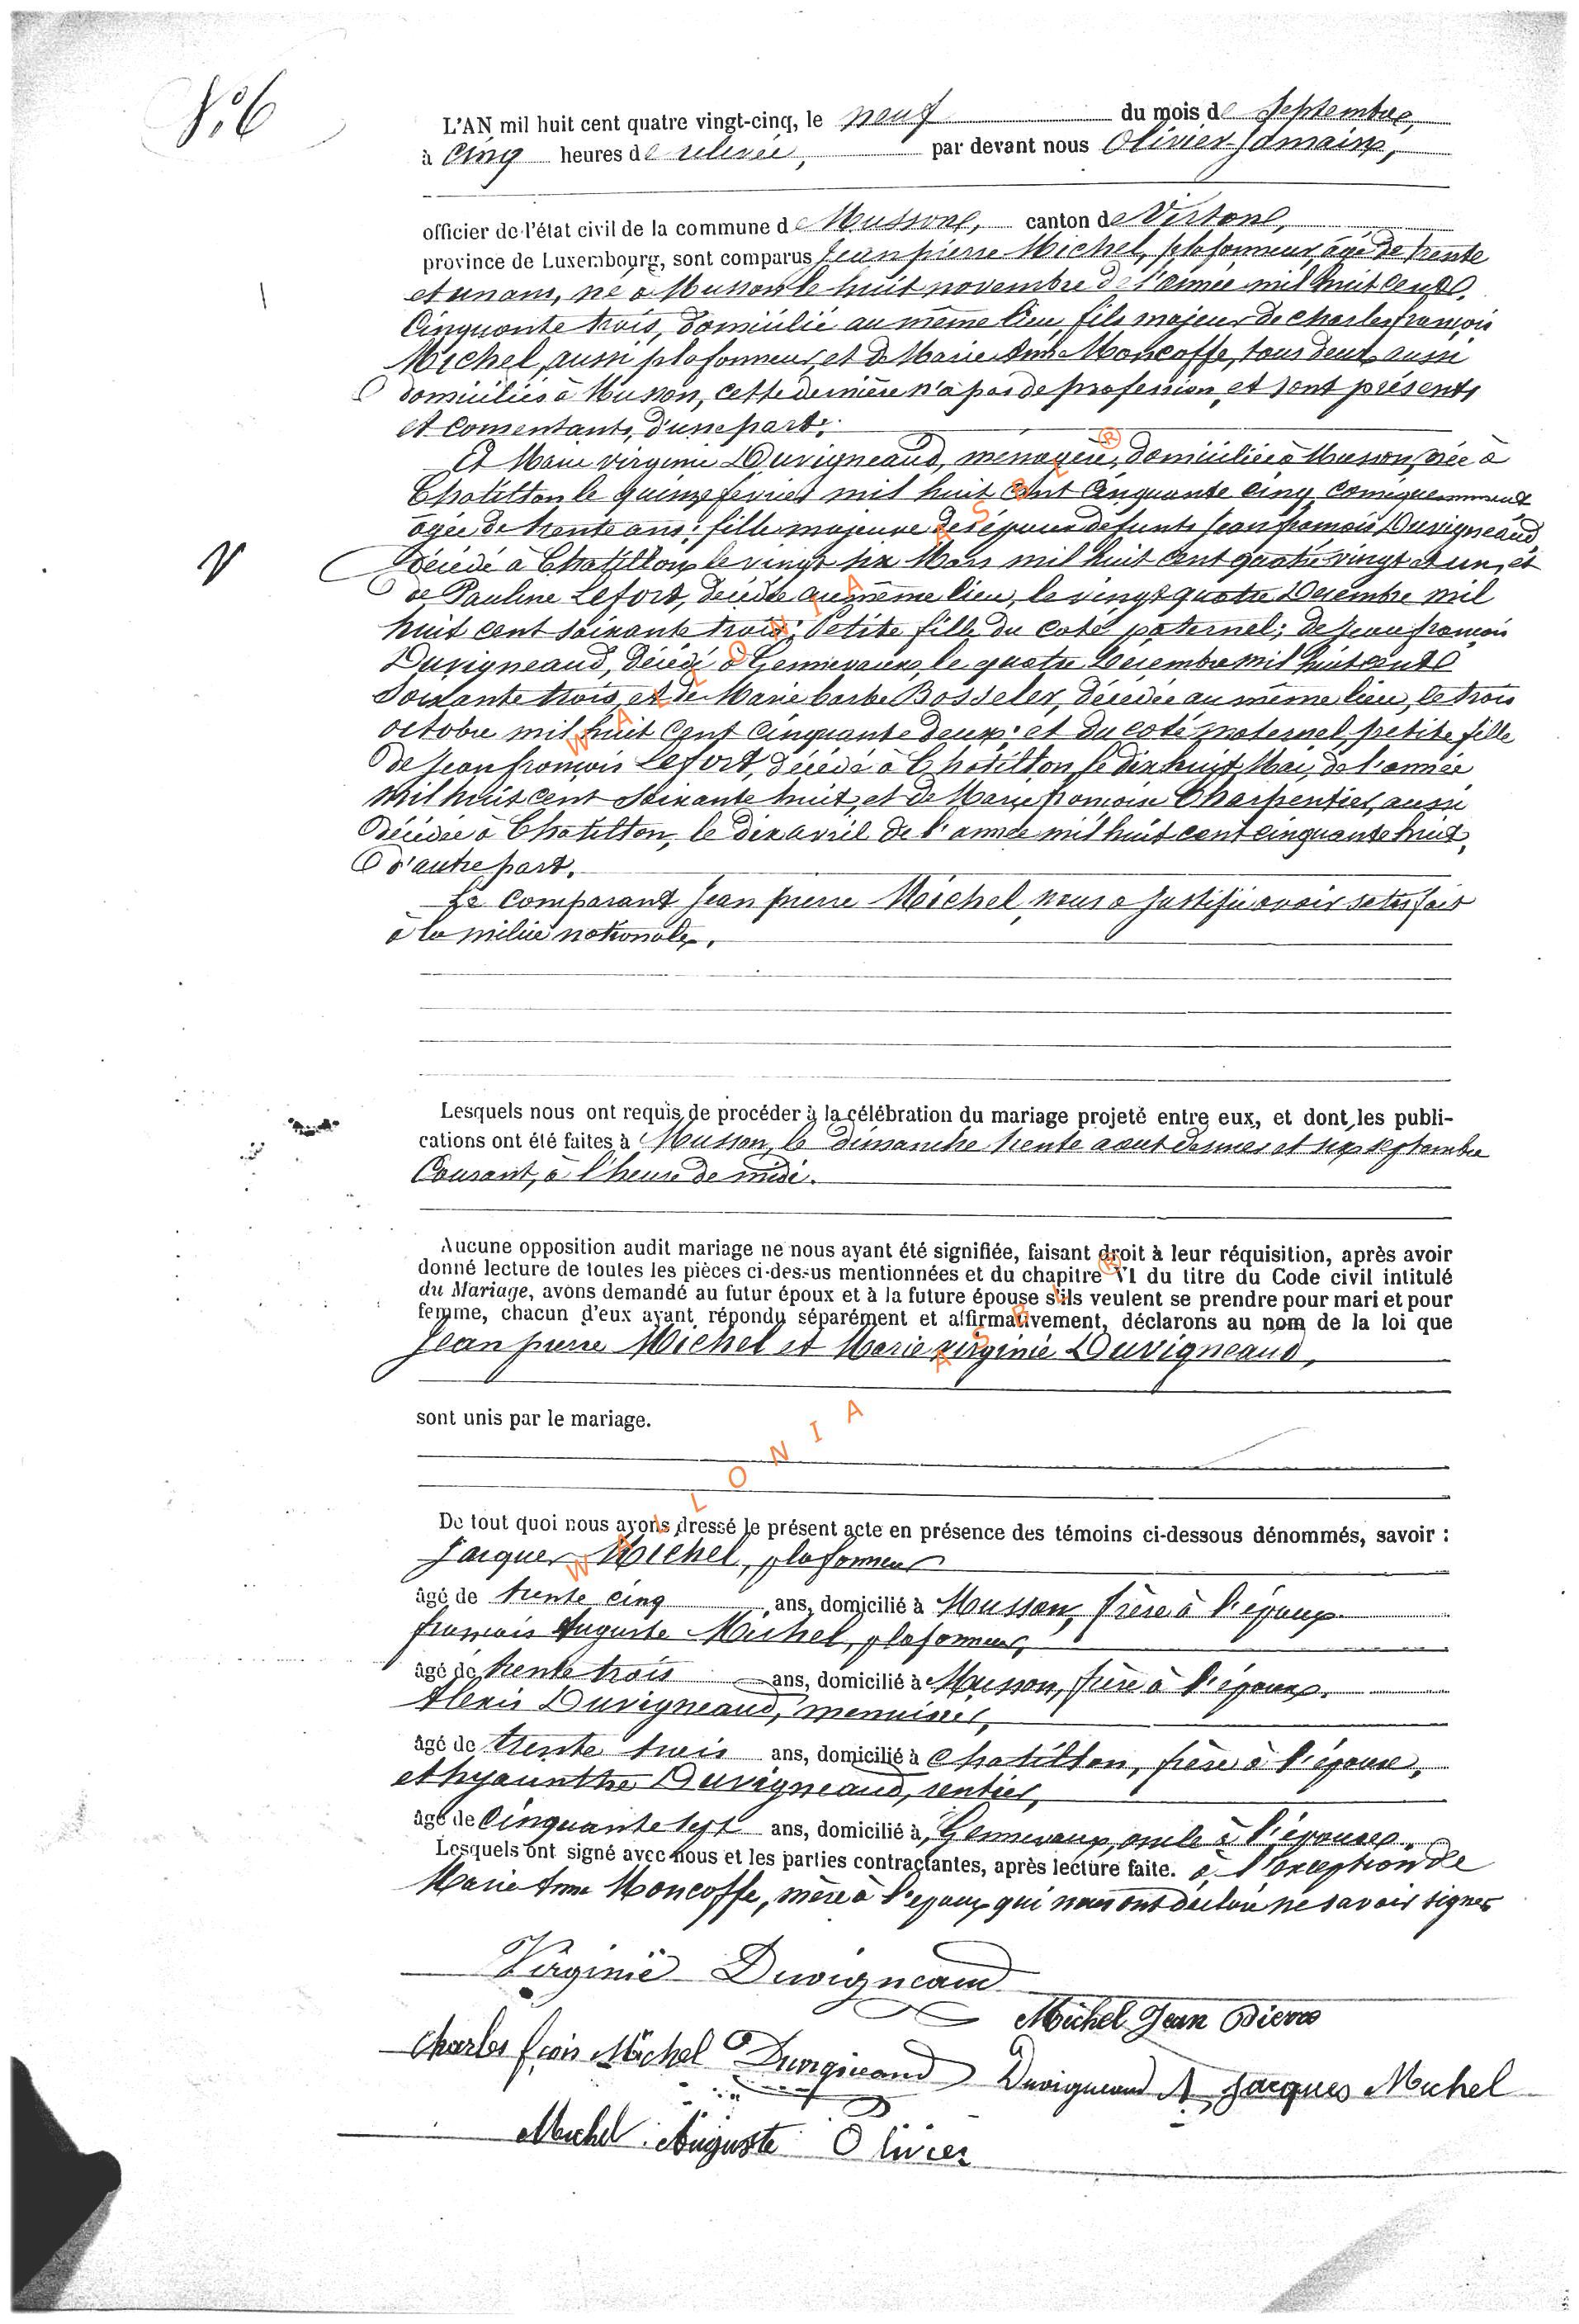 N° 6
L'AN mil huit cent quatre vingt-cinq, le neuf du mois de septembre,
à cinq heures de relevée, par devant nous Olivier Jomain,
officier de l'état civil de la commune de Musson, canton de Virton,
province de Luxembourg, sont comparus Jean pierre Michel, plafonneur, âgé de trente
et un ans, né à Musson le huit novembre de l'année mil huit cent
cinquante trois, domicilié au même lieu, fils majeur de charles françois
Michel, aussi plafonneur, et de Marie Anne Moncoffe, tous deux aussi
domiciliés à Musson, cette dernière n'a pas de profession, et sont présents
et consentants, d'une part;
Et Marie virginie Duvigneaud, ménagère, domiciliée à Musson, née à
Chatillon le quinze février mil huit cent cinquante cinq, conséquemment
âgée de trente ans; fille majeure des époux defunts Jean françois Duvigneaud,
décédé à Chatillon le vingt six Mars mil huit cent quatre vingt et un, et
de Pauline Lefort, décédée au même lieu, le vingt quatre Décembre mil
huit cent soixante trois; Petite fille du coté paternel; de Jean françois
Duvigneaud, décédé à Gennevaux, le quatre Décembre mil huit cent
soixante trois, et de Marie barbe Bosseler, décédée au même lieu, le trois
octobre mil huit cent cinquante deux; et du coté maternel, petite fille
de Jean françois Lefort, décédé à Chatillon, le dix huit Mai, de l'année
mil huit cent soixante huit, et de Marie françoise Charpentier, aussi
décédée à Chatillon, le dix avril de l'année mil huit cent cinquante huit,
d'autre part.
Le comparant Jean pierre Michel, nous a justifié avoir satisfait
à la milice nationale.
Lesquels nous ont requis de procéder à la célébration du mariage projeté entre eux, et dont les publi-
cations ont été faites à Musson, le dimanche trente aout dernier et six septembre
courant, à l'heure de midi.
Aucune opposition audit mariage ne nous ayant été signifiée, faisant droit à leur réquisition, après avoir
donné lecture de toutes les pièces ci-dessus mentionnées et du chapitre VI du titre du Code civil intitulé
du Mariage, avons demandé au futur époux et à la future épouse s'ils veulent se prendre pour mari et pour
femme, chacun d'eux ayant répondu séparément et affirmativement, déclarons au nom de la loi que
Jean pierre Michel et Marie virginie Duvigneaud,
sont unis par le mariage.
De tout quoi nous avons dressé le présent acte en présence des témoins ci-dessous dénommés, savoir :
Jacques Michel, plafonneur
âgé de trente cinq ans, domicilié à Musson, frère à l'époux.
françois Auguste Michel, plafonneur,
âgé de trente trois ans, domicilié à Musson, frère à l'époux.
Alexis Duvigneaud, menuisier,
âgé de trente trois ans, domicilié à Chatillon, frère à l'épouse,
et hyacinthe Duvigneaud, rentier,
âgé de cinquante sept ans, domicilié à Gennevaux, oncle à l'épouse.
Lesquels ont signé avec nous et les parties contractantes, après lecture faite. à l'exception de
Marie Anne Moncoffe, mère à l'époux qui nous ont déclaré ne savoir signer
Virginie Duvigneaud
Michel Jean Pierre
Charles fçois Michel Duvigneaud Duvigneaud A Jacques Michel
Michel Auguste Olivier
WALLONIA ASBL ®
WALLONIA ASBL ®